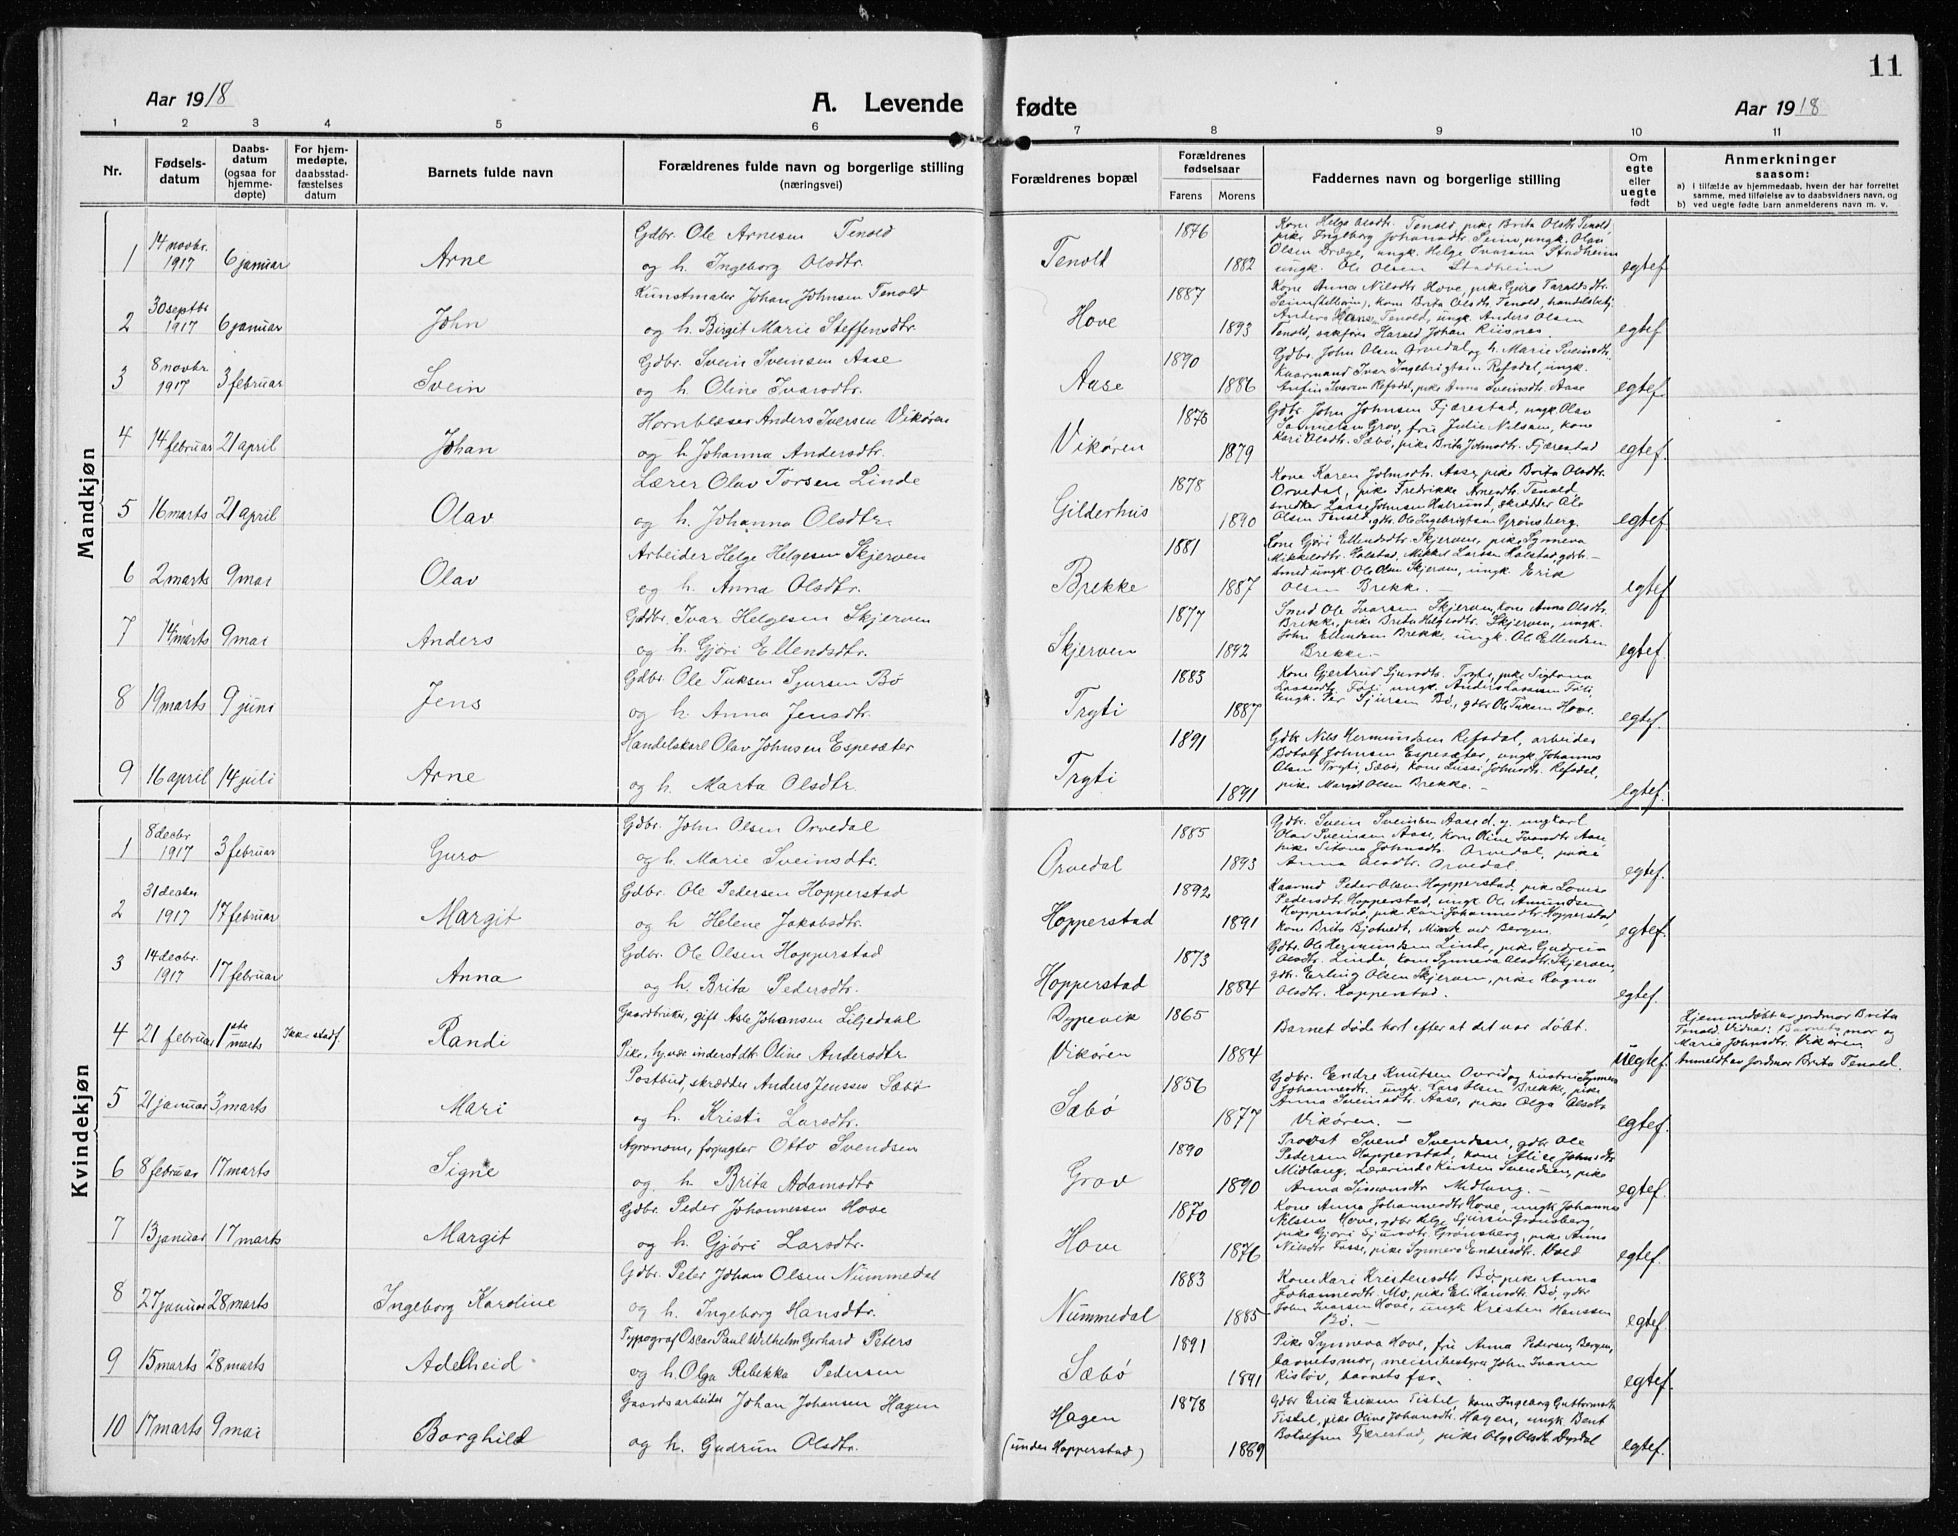 11
Aar 1918
A. Levende fødte
Aar 1918
1 2 3 4 5 6 7 8 9 10 11
Nr.
Fødsels-
datum
Daabs-
datum
(ogsaa for
hjemme-
døpte)
For hjem-
medøpte,
daabsstad-
fæstelses
datum
Barnets fulde navn
Forældrenes fulde navn og borgerlige stilling
(næringsvei)
Forældrenes bopæl
Forældrenes
fødselsaar
Farens Morens
Faddernes navn og borgerlige stilling
Om
egte
eller
uegte
født
Anmerkninger
saasom:
a) I tilfælde av hjemmedaab, hvem der har forrettet
samme, med tilføielse av to daabsvidners navn, og
b) ved uegte fødte barn anmelderens navn m. v.
Mandkjøn
1 14 novbr. 1917 6 januar Arne
Gdbr. Ole Arnesen Tenold
og h. Ingeborg Olsdtr.
Tenold 1876 1882
Kone Helga Olsdtr. Tenold, pike Brita Olsdtr. Tenold,
pike Ingeborg Johansdtr. Seim, ungk. Olav
Olsen Dræge, ungk. Helge Ivarsen Stadheim
ungk. Ole Olsen Stadheim
egtef.
2 30 septbr 1917 6 januar John
Kunstmaler Johan Johnsen Tenold
og h. Birgit Marie Steffensdtr.
Hove 1887 1893
Kone Anna Nilsdtr. Hove, pike Guro Taraldsdtr.
kone Brita Olsdtr. Tenold, handelsbetj.
Anders Hans. Tenold, ungk. Anders Olsen
Tenold, sakfører Harald Johan Riisnes
egtef.
3 8 novbr 1917 3 februar Svein
Gdbr. Svein Sveinsen Aase
og h. Oline Ivarsdtr.
Aase 1890 1886
Gdbr. John Olsen Orvedal og h. Marie Sveinsdtr.
Kaarmand Ivar Ingebrigtsen Refsdal, ungk.
Anfin Ivarsen Refsdal, pike Anna Sveinsdtr. Aase
egtef.
4 14 februar 21 april Johan
Hornblæser Anders Iversen Vikøren
og h. Johanna Andersdtr.
Vikøren 1879
Gdbr. John Johnsen Fjærestad, ungk. Olav
Samuelsen Grov, fru Julie Nilsen, kone
Kari Olsdtr. Sæbø, pike Brita Johnsdtr. Fjærestad
egtef.
5 16 marts 21 april Olav
Lærer Olav Torsen Linde
og h. Johanna Olsdtr.
Gilderhus 1878 1890
Kone Karen Johnsdtr. Aase, pike Brita Olsdtr.
Orvedal, pike Fredrikke Arnesdtr. Tenold
snedker Lasse Johnsen Halrund, skrædder Ole
Olsen Tenold, gdbr. Ole Ingebrigtsen Grønsberg.
egtef.
6 2 marts 9 mai Olav
Arbeider Helge Helgesen Skjerven
og h. Anna Olsdtr.
Brekke 1881 1887
Kone Gjøri Ellendsdtr. Skjerven, pike Synneva
Mikkelsdtr. Holstad, Mikkel Larsen Holstad gdb. -
smed ungk. Ole Olsen Skjerven, ungk. Erik
Olsen Brekke. -
egtef.
7 14 marts 9 mai Anders
Gdbr. Ivar Helgesen Skjerven
og h. Gjøri Ellendsdtr.
Skjerven 1877 1892
Smed Ole Ivarsen Skjerven, kone Anna Olsdtr.
Brekke, pike Brita Helgesdtr. Skjerven, ungk.
John Ellendsen Brekke, ungk. Ole Ellendsen
Brekke. -
egtef.
8 19 marts 9 juni Jens
Gdbr. Ole Tuksen Sjursen Bø
og h. Anna Jensdtr.
Tryti 1883 1887
Kone Gjertrud Sjursdtr. Tryti, pike
Lassesdtr. Føli, ungk. Anders Lassesen Føli,
ungk. Per Sjursen Bø, gdbr Ole Tuksen Hove.
egtef.
9 16 april 14 juli Arne
Handelskarl Olav Johnsen Espesæter
og h. Marta Olsdtr.
Tryti 1891 1891
Gdbr. Nils Hermundsen Refsdal, arbeider
Botolf Johnsen Espesæter, ungk. Johannes
Olsen Tryti, Sæbø, kone Lussi Johnsdtr. Refsdal,
pike Margit Olsen Brekke. -
egtef.
Kvindekjøn
1 8 decbr 1917 3 februar Guro
Gdbr. John Olsen Orvedal
og h. Marie Sveinsdtr.
Orvedal 1885 1893
Gdbr. Svein Sveinsen Aase d. y. ungkarl
Olav Sveinsen Aase, kone Oline Ivarsdtr. Aase,
pike Johnsdtr. Orvedal, pike
Anna Olsdtr. Orvedal
egtef.
2 31 decbr 1917 17 februar Margit
Gdbr. Ole Pedersen Hopperstad
og h Helene Jakobsdtr.
Hopperstad 1892 1891
Kaarmd Peder Olsen Hopperstad, pike Lovise
Pedersdtr. Hopperstad, ungk Ole Amundsen
Hopperstad, pike Kari Johannesdtr. Hopperstad,
kone Brita ved Bergen.
egtef.
3 14 decbr. 1917 17 februar Anna
Gdbr. Ole Olsen Hopperstad
og h. Brita Pedersdtr.
Hopperstad 1873 1884
Gdbr. Ole Hermundsen Linde, pike Gudrun
Olsdtr. Linde, kone Synneva Olsdtr. Skjerven,
gdbr. Erling Olsen Skjerven, pike Ragna
Olsdtr. Hopperstad.
egtef.
4 21 februar 1ste marts Ikke stadf. Randi
Gaardbruker, gift Asle Johansen Liljedahl
Pike, Oline Andersdtr
Dypevik Vikøren 1865 1884
Barnet døde kort efter at det var døbt.
uegtef.
Hjemmedøbt av jordmor Brita
Tenold. Vidner: Barnets mor og
Marie Johnsdtr. Vikøren
Anmeldt av Jordmor Brita Tenold.
5 21 januar 3 marts Mari
Postbud, skrædder Anders Jenssen Sæbø
og h. Kristi Larsdtr.
Sæbø 1856 1877
Gdbr. Endre Knutsen Ovrid og hustru Synneva
Johannesdtr. ungk. Lars Olsen Brekke, pike
Anna Sveinsdtr. Aase, pike Olga Olsdtr
Vikøren. -
egtef.
6 8 februar 17 marts Signe
Agronom, forpagter Otto Svendsen
og h. Brita Adamsdtr
Grov 1890 1890
Provst Svend Svendsen, gdbr. Ole
Pedersen Hopperstad, kone Alice Johnsdtr
Midlang, Lærerinde Kirsten Svendsen, pike
Anna Simonsdtr Midlang. -
egtef.
7 13 januar 17 marts Margit
Gdbr. Peder Johannessen Hove
og h. Gjøri Larsdtr.
Hove 1870 1876
Kone Anna Johannesdtr Hove, ungk Johannes
Nilsen Hove, gdbr. Helge Sjursen Grønsberg,
pike Gjøri Sjursdtr. Grønsberg, pike Anna
Nilsdtr Fosse, pike Synneva Endresdtr. Voll
egtef.
8 27 januar 28 marts Ingeborg Karoline
Gdbr. Peter Johan Olsen Nummedal
og h. Ingeborg Hansdtr.
Nummedal 1883 1885
Kone Kari Kristensdtr. Bø, pike Anna
Johannesdtr. Mo, pike Eli Hansdtr Bø, gdbr
John Ivarsen Hove, ungk Kristen Hanssen
Bø. -
egtef.
9 15 marts 28 marts Adelheid
Typograf Oscar Paul Wilhelm Gerhard Peters
og h. Olga Rebekka Pedersen
Sæbø 1891 1891
Pike Synneva Hove, fru Anna Pedersen, Bergen,
barnets mor, meieribestyrer John Ivarsen
Risløv, barnets far. -
egtef.
10 17 marts 9 mai Borghild
Gaardsarbeider Johan Johansen Hagen
og h. Gudrun Olsdtr.
Hagen (under Hopperstad) 1878 1889
Gdbr Erik Eriksen Tistel, kone Ingeborg Guttormsdtr
Tistel, pike Oline Johansdtr. Hagen, ungk. Bent
Botolfsen Fjærestad, pike Olga Olsdtr. Dysdal
egtef.